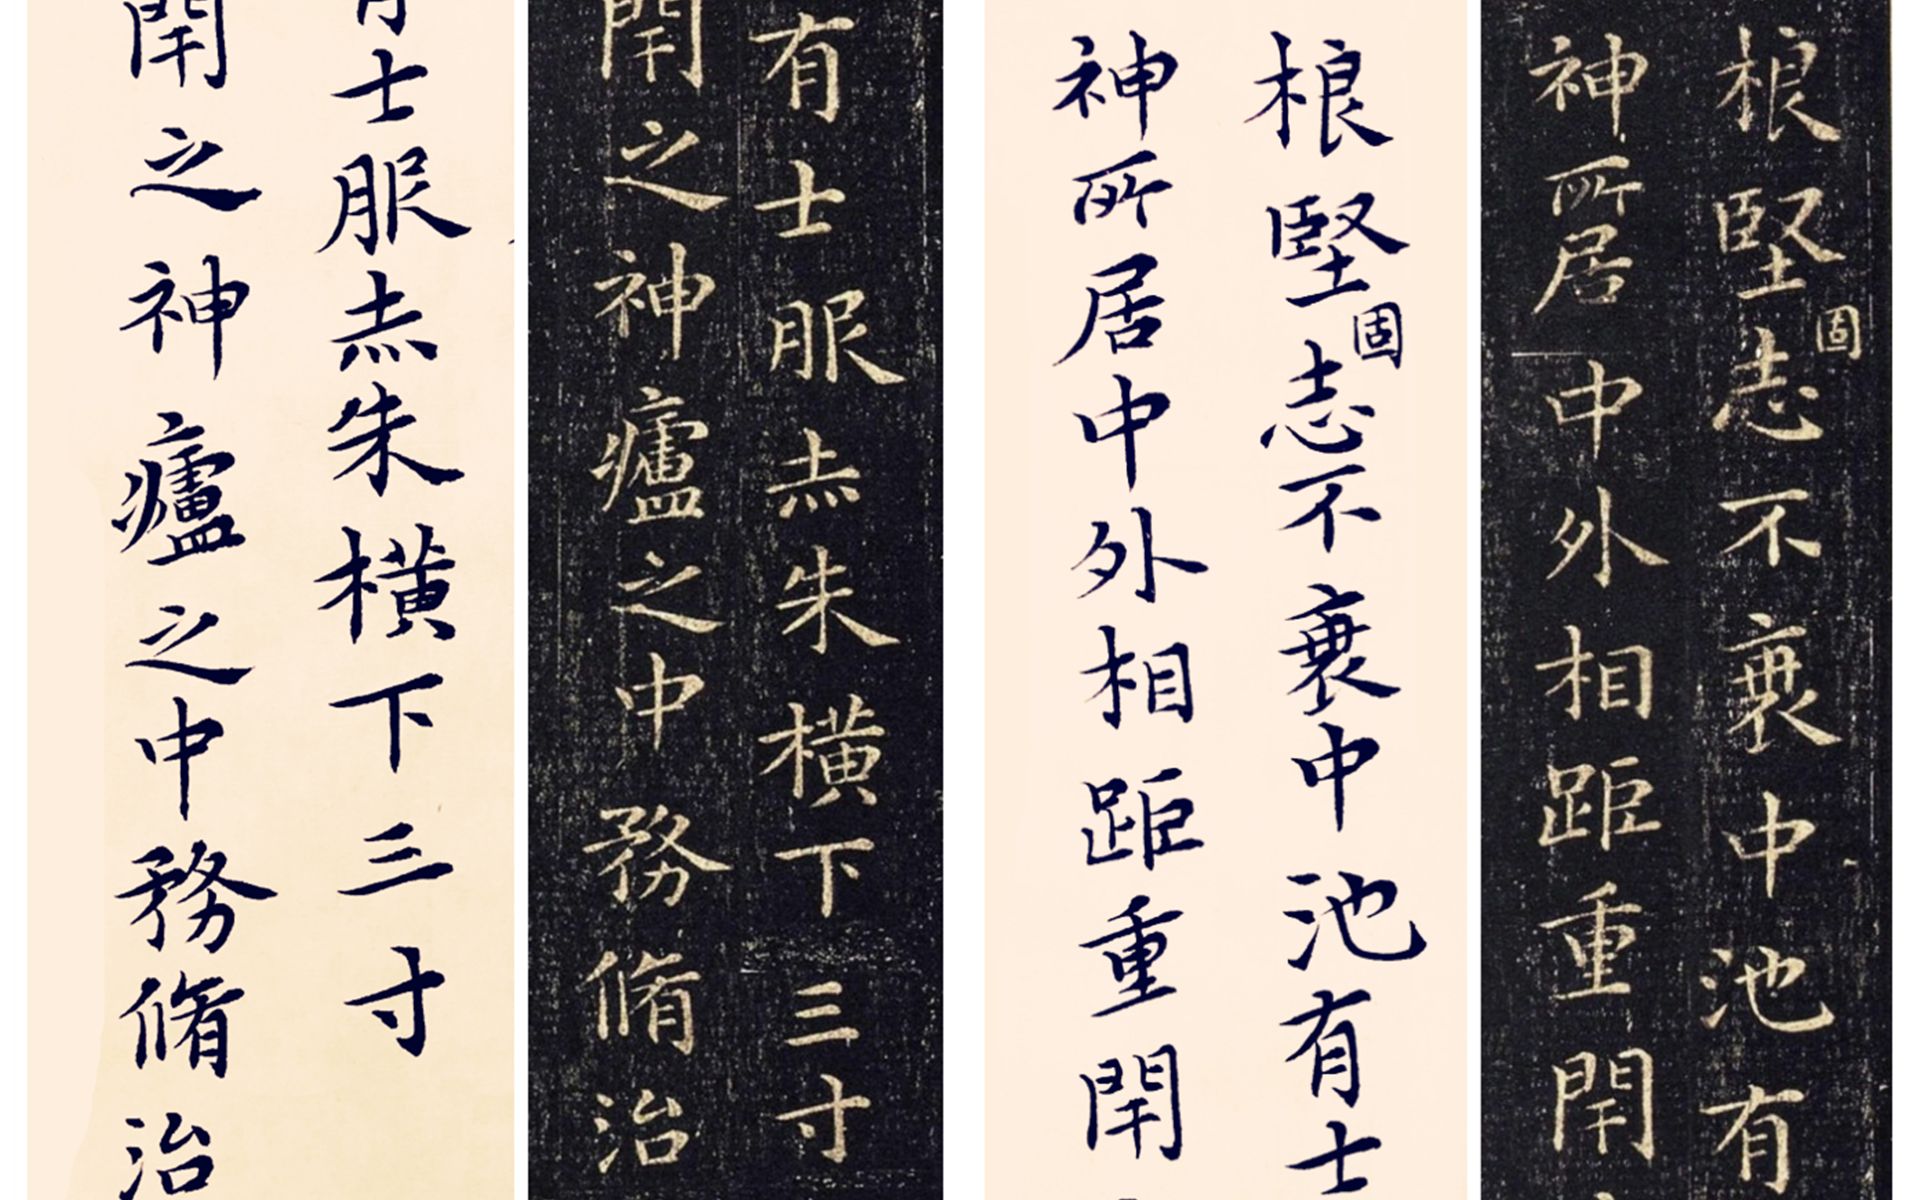 根堅固志不衰中池有
神所居中外相距重閇
根堅固志不衰中池有士
神所居中外相距重閇
有士服赤朱橫下三寸
閇之神廬之中務脩治
有士服赤朱橫下三寸
閇之神廬之中務脩治